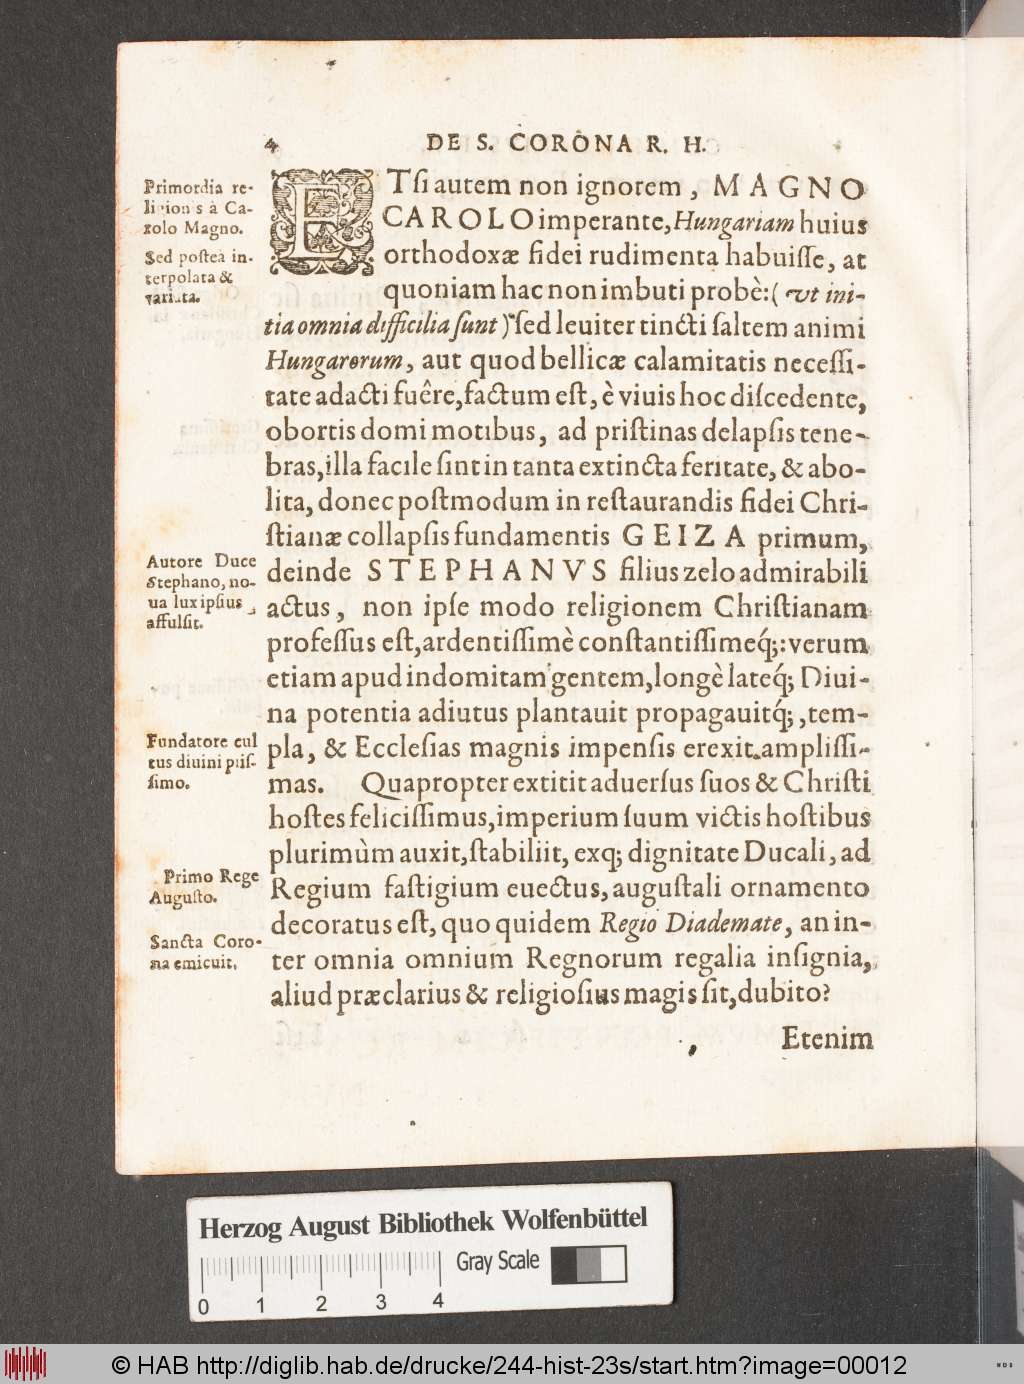 4 DE S. CORONA R. H.
ETſi autem non ignorem, MAGNO
CAROLO imperante, Hungariam huius
orthodoxæ fidei rudimenta habuiſſe, at
quoniam hac non imbuti probè: (vt ini-
tia omnia difficilia ſunt) ſed leuiter tincti ſaltem animi
Hungarorum, aut quod bellicæ calamitatis neceſſi-
tate adacti fuêre, factum eſt, è viuis hoc diſcedente,
obortis domi motibus, ad priſtinas delapſis tene-
bras, illa facile ſint in tanta extincta feritate, & abo-
lita, donec poſtmodum in reſtaurandis fidei Chri-
ſtianæ collapſis fundamentis GEIZA primum,
deinde STEPHANVS filius zelo admirabili
actus, non ipſe modo religionem Chriſtianam
profeſſus eſt, ardentiſſimè conſtantiſſimeq́;: verum
etiam apud indomitam gentem, longè lateq́; Diui-
na potentia adiutus plantauit propagauitq́;, tem-
pla, & Eccleſias magnis impenſis erexit ampliſſi-
mas. Quapropter extitit aduerſus ſuos & Chriſti
hoſtes feliciſſimus, imperium ſuum victis hoſtibus
plurimùm auxit, ſtabiliit, exq; dignitate Ducali, ad
Regium faſtigium euectus, auguſtali ornamento
decoratus eſt, quo quidem Regio Diademate, an in-
ter omnia omnium Regnorum regalia inſignia,
aliud præclarius & religioſius magis ſit, dubito?
Etenim
Primordia re-
ligionis à Ca-
rolo Magno.
Sed poſteà in-
terpolata &
variata.
Autore Duce
Stephano, no-
ua lux ipſius
affulſit.
Fundatore cul
tus diuini piiſ-
ſimo.
Primo Rege
Auguſto.
Sancta Coro-
na emicuit.
Herzog August Bibliothek Wolfenbüttel
Gray Scale
0 1 2 3 4
© HAB http://diglib.hab.de/drucke/244-hist-23s/start.htm?image=00012